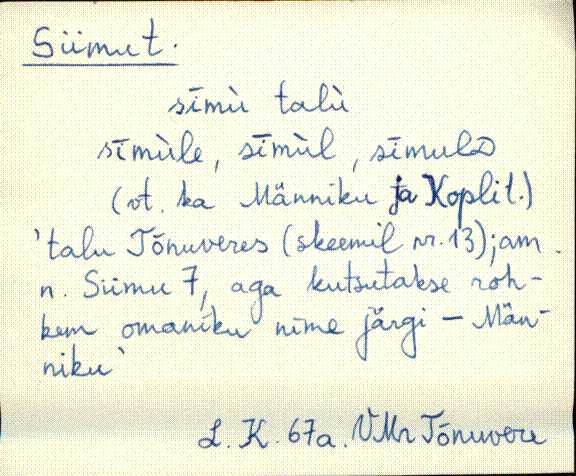 Siimu t.
sīmù talù
sīmùle, sīmùl, sīmulᴅ
(vt. ka Männiku ja Koplit.)
'talu Tõnuveres (skeemil nr. 13); am.
n. Siimu 7, aga kutsutakse roh-
kem omaniku nime järgi – Män-
niku'
L. K. 67a. VMr Tõnuvere